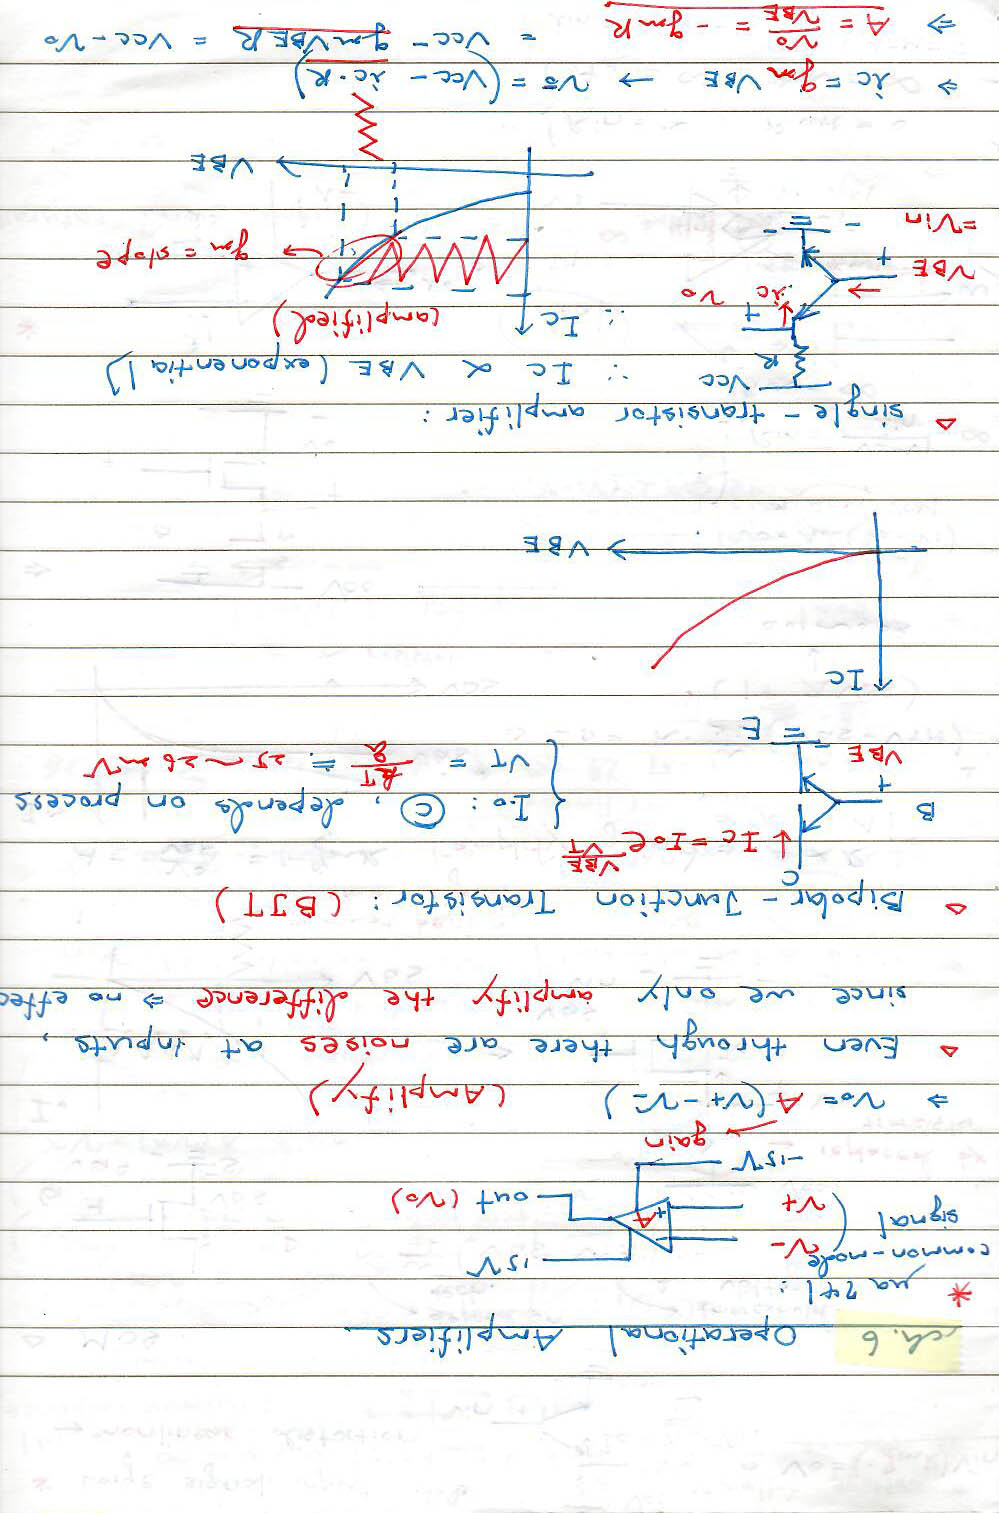 ch.6 Operational Amplifiers
* μa 741 :
common-mode
signal
V-
V+
15V
A
+
-
out (Vo)
-15V
gain
⇒ Vo = A (V+ - V-) (Amplify)
▵ Even through there are noises at inputs,
since we only amplify the difference ⇒ no effec
▵ Bipolar - Junction Transistor : (BJT)
C
↓ Ic = Io e^(VBE/VT)
B
+
VBE
-
E
{ Io : Ⓒ, depends on process
VT = kT/q ≒ 25 ~ 26 mV
Ic
VBE
▵ single - transistor amplifier :
Vcc
R
∵ Ic ∝ VBE (exponential)
∴ Ic (amplified)
+
ic
Vo
+
VBE
= Vin
-
-
gm = slope
VBE
⇒ ic = gm VBE → Vo = (Vcc - ic·R)
⇒ A = Vo/VBE = - gmR = Vcc - gmVBER = Vcc - Vo